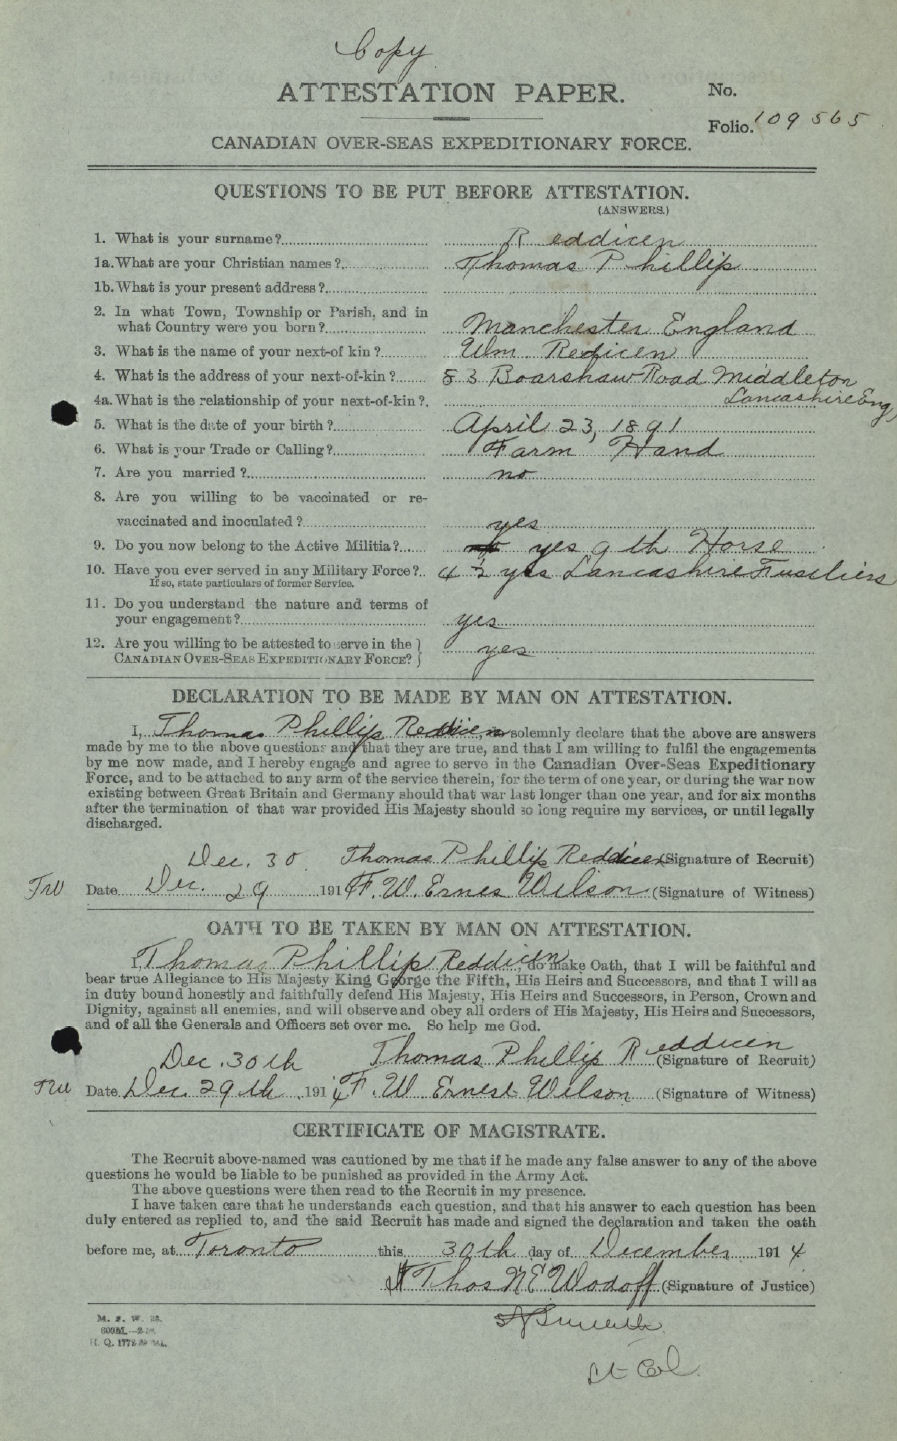 Copy
ATTESTATION PAPER.
No.
Folio. 109565
CANADIAN OVER-SEAS EXPEDITIONARY FORCE.
QUESTIONS TO BE PUT BEFORE ATTESTATION.
(ANSWERS.)
1. What is your surname? Reddicen
1a. What are your Christian names? Thomas Phillip
1b. What is your present address?
2. In what Town, Township or Parish, and in
what Country were you born? Manchester England
3. What is the name of your next-of kin? Wm Redicen
4. What is the address of your next-of-kin? 83 Boarshaw Road Middleton
Lancashire Eng
4a. What is the relationship of your next-of-kin?
5. What is the date of your birth? April 23, 1891
6. What is your Trade or Calling? Farm Hand
7. Are you married? no
8. Are you willing to be vaccinated or re-
vaccinated and inoculated? yes
9. Do you now belong to the Active Militia? yes 9th Horse
10. Have you ever served in any Military Force? 4 ½ yrs Lancashire Fusiliers
If so, state particulars of former Service.
11. Do you understand the nature and terms of
your engagement? yes
12. Are you willing to be attested to serve in the
CANADIAN OVER-SEAS EXPEDITIONARY FORCE? yes
DECLARATION TO BE MADE BY MAN ON ATTESTATION.
I, Thomas Phillip Reddicen, solemnly declare that the above are answers
made by me to the above questions and that they are true, and that I am willing to fulfil the engagements
by me now made, and I hereby engage and agree to serve in the Canadian Over-Seas Expeditionary
Force, and to be attached to any arm of the service therein, for the term of one year, or during the war now
existing between Great Britain and Germany should that war last longer than one year, and for six months
after the termination of that war provided His Majesty should so long require my services, or until legally
discharged.
Dec. 30 Thomas Phillip Reddicen (Signature of Recruit)
Date Dec. 29 1914 F. W. Ernes Wilson (Signature of Witness)
OATH TO BE TAKEN BY MAN ON ATTESTATION.
I, Thomas Phillip Reddicen, do make Oath, that I will be faithful and
bear true Allegiance to His Majesty King George the Fifth, His Heirs and Successors, and that I will as
in duty bound honestly and faithfully defend His Majesty, His Heirs and Successors, in Person, Crown and
Dignity, against all enemies, and will observe and obey all orders of His Majesty, His Heirs and Successors,
and of all the Generals and Officers set over me. So help me God.
Dec. 30th Thomas Phillip Reddicen (Signature of Recruit)
Date Dec. 29th 1914 F. W. Ernest Wilson (Signature of Witness)
CERTIFICATE OF MAGISTRATE.
The Recruit above-named was cautioned by me that if he made any false answer to any of the above
questions he would be liable to be punished as provided in the Army Act.
The above questions were then read to the Recruit in my presence.
I have taken care that he understands each question, and that his answer to each question has been
duly entered as replied to, and the said Recruit has made and signed the declaration and taken the oath
before me, at Toronto this 30th day of December 1914
Thos (Signature of Justice)
Lt Col
M. F. W. 23.